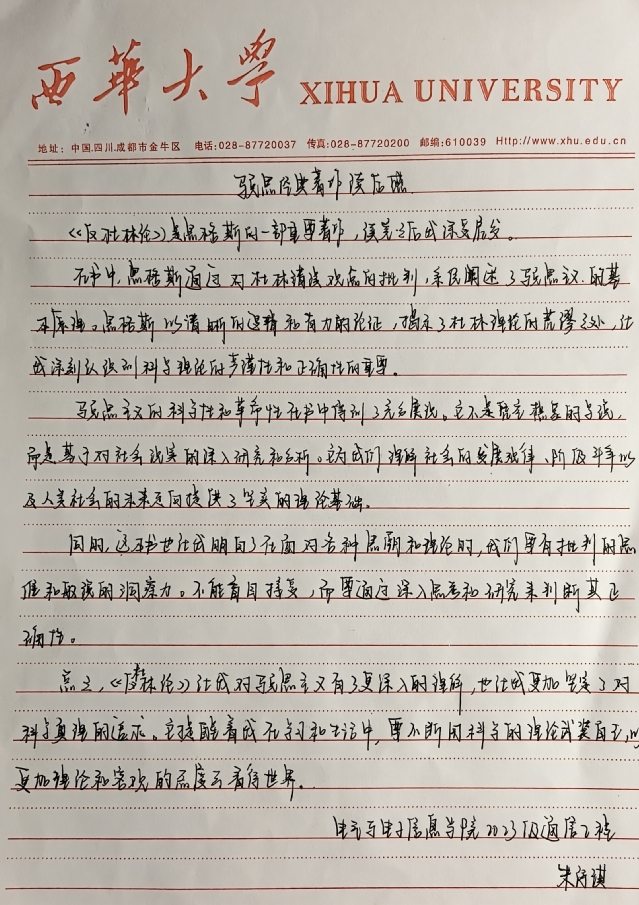 西華大學 XIHUA UNIVERSITY
地址：中国.四川.成都市金牛区 电话:028-87720037 传真:028-87720200 邮编:610039 Http://www.xhu.edu.cn
马恩经典著作读后感
《反杜林论》是恩格斯的一部重要著作，读完之后我深受启发。
在书中，恩格斯通过对杜林错误观点的批判，系统阐述了马思主义的基
本原理。恩格斯以清晰的逻辑和有力的论证，揭示了杜林理论的荒谬之处，让
我深刻认识到科学理论的严谨性和正确性的重要。
马克思主义的科学性和革命性在书中得到了充分展现。它不是随意想象的学说，
而是基于对社会现实的深入研究和分析。它为我们理解社会的发展规律、阶级斗争以
及人类社会的未来方向提供了坚实的理论基础。
同时，这本书也让我明白了在面对各种思潮和理论时，我们要有批判的思
维和敏锐的洞察力。不能盲目接受，而要通过深入思考和研究来判断其正
确性。
总之，《反杜林论》让我对马克思主义有了更深入的理解，也让我更加坚定了对
科学真理的追求。它提醒着我在学习和生活中，要不断用科学的理论武装自己，以
更加理论和客观的态度去看待世界。
电气与电子信息学院2023级通信工程